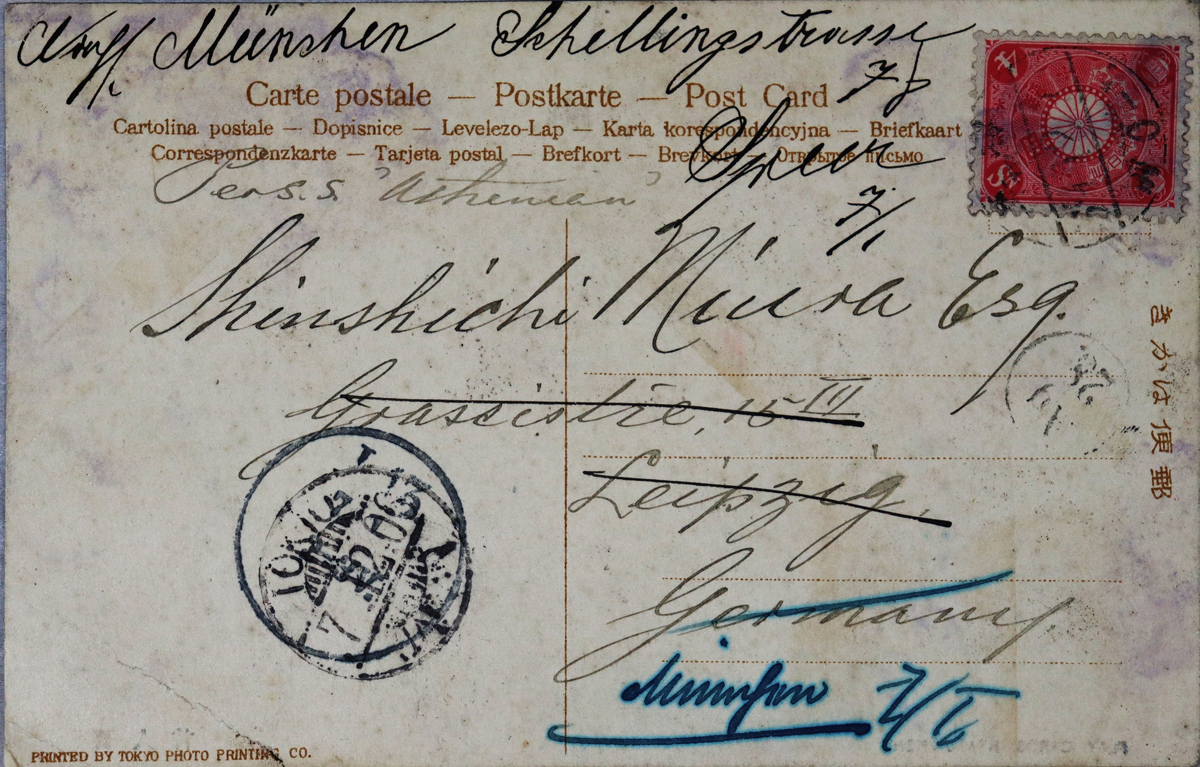 Auff. München Schellingstrasse
75
Carte postale — Postkarte — Post Card
Cartolina postale — Dopisnice — Levelezo-Lap — Karta korespondencyjna — Briefkaart
Correspondenzkarte — Tarjeta postal — Brefkort — Brevkort — Открытое письмо
Per s.s. "Athenian"
7/1
Shinshichi Miura Esq.
Grassistre, 15 III
Leipzig.
Germany.
München 7/I
きかは便郵
TOKIO
PRINTED BY TOKYO PHOTO PRINTING CO.